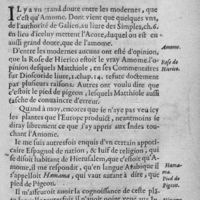 IL y a vn grand doute entre les modernes, que
c'est qu'Amome. Dont vient que quelques vns,
de l'authorité de Galien, au liure des Simples, ch. 6.
en lieu d'iceluy mettent l'Acore, duquel on est en
aussi grand doute, que de l'amome.
D'entre les modernes aucuns ont esté d'opinion,
que la Rose de Hierico estoit le vray Amome: l'o-
pinion desquels Matthiole, en ses Commentaires
sur Dioscoride liure, 1. chap. 14. refute doctement
ou plustost iniurieusement. Les autres ont estimé
que c'estoit le pied de pigeon, lesquels Matthiole aussi
tasche de conuaincre d'erreur.
Quand à moy, encores que ie n'aye pas veu
les plantes que l'Europe produict, neantmoins ie
diray ensemblément ce qu'il m'en semble.
Ie me suis autresfois enquis d'vn certain appoti-
caire Espagnol de nation, & Iuif de religion, qui
se disoit habitant de Hierusalem, que c'estoit qu'A-
mome, il me respondit, qu'en langue Arabique il
s'appelloit Hamama, qui vaut autant à dire, que
pied de Pigeon.
Il m'asseuroit auoir la cognoissance de ceste plan-
Amome.
Rose de
Hierico.
Hama-
ma.
Pied de
Pigeon.